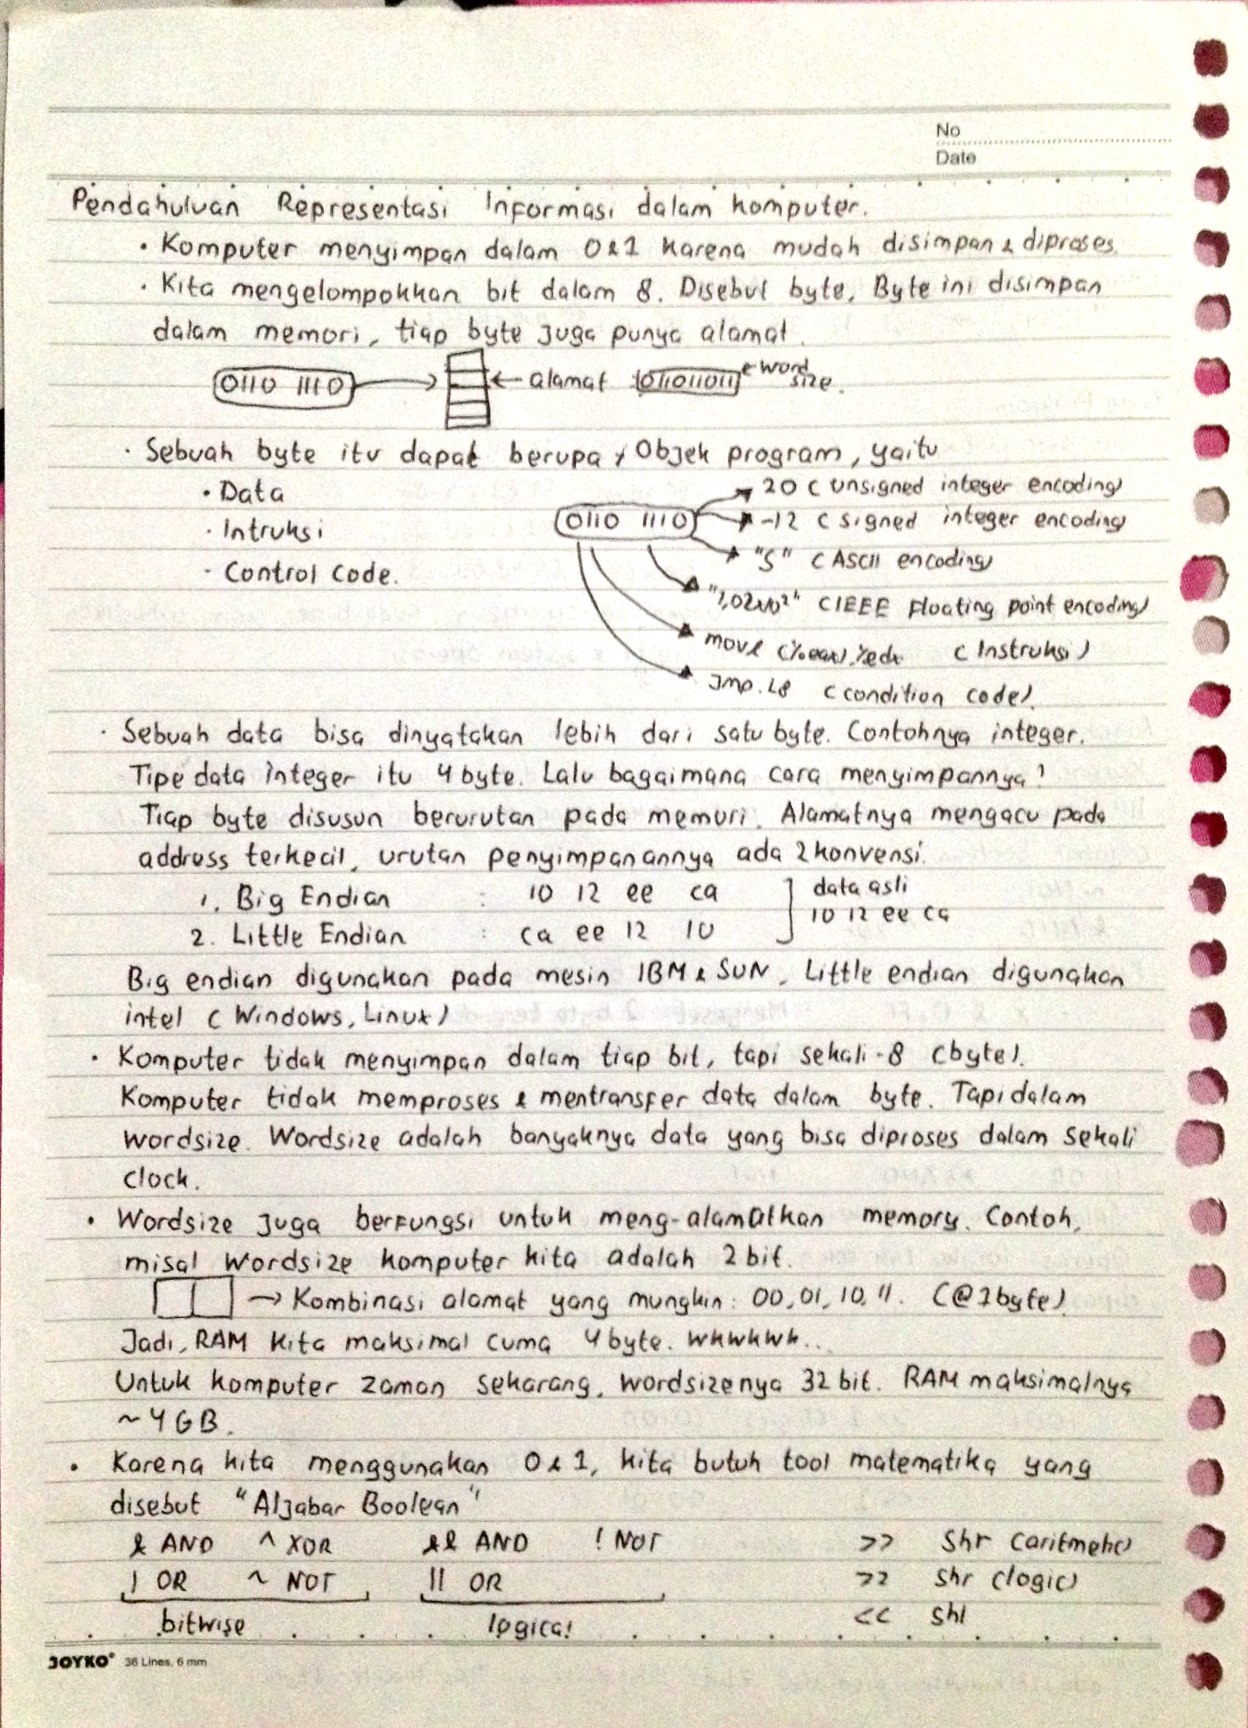 No
Date
Pendahuluan Representasi Informasi dalam komputer.
• Komputer menyimpan dalam 0&1 karena mudah disimpan & diproses.
• Kita mengelompokkan bit dalam 8. Disebut byte. Byte ini disimpan
dalam memori, tiap byte juga punya alamat.
0110 1110 alamat 011011011 word
size.
• Sebuah byte itu dapat berupa Objek program, yaitu
• Data
• Intruksi
• Control Code.
0110 1110
20 (unsigned integer encoding)
-12 (signed integer encoding)
"S" (ASCII encoding)
(IEEE Floating point encoding)
(Instruksi)
Jmp.L8 (condition code)
• Sebuah data bisa dinyatakan lebih dari satu byte. Contohnya integer.
Tipe data integer itu 4 byte. Lalu bagaimana cara menyimpannya?
Tiap byte disusun berurutan pada memori. Alamatnya mengacu pada
address terkecil, urutan penyimpanannya ada 2 konvensi.
1. Big Endian : 10 12 ee ca
2. Little Endian : ca ee 12 10
data asli
10 12 ee ca
Big endian digunakan pada mesin IBM & SUN. Little endian digunakan
intel (Windows, Linux)
• Komputer tidak menyimpan dalam tiap bit, tapi sekali-8 (byte).
Komputer tidak memproses & mentransfer data dalam byte. Tapi dalam
wordsize. Wordsize adalah banyaknya data yang bisa diproses dalam sekali
clock.
• Wordsize juga berfungsi untuk meng-alamatkan memory. Contoh,
misal wordsize komputer kita adalah 2 bit.
→ Kombinasi alamat yang mungkin: 00,01,10,11. (@1byte)
Jadi, RAM kita maksimal cuma 4 byte. wkwkwk..
Untuk komputer zaman sekarang, wordsizenya 32 bit. RAM maksimalnya
~4GB.
• Karena kita menggunakan 0&1, kita butuh tool matematika yang
disebut "Aljabar Boolean"
& AND ^ XOR && AND ! NOT >> Shr (aritmetic)
| OR ~ NOT || OR >> Shr (logic)
bitwise logical << Shl
JOYKO® 36 Lines, 6 mm